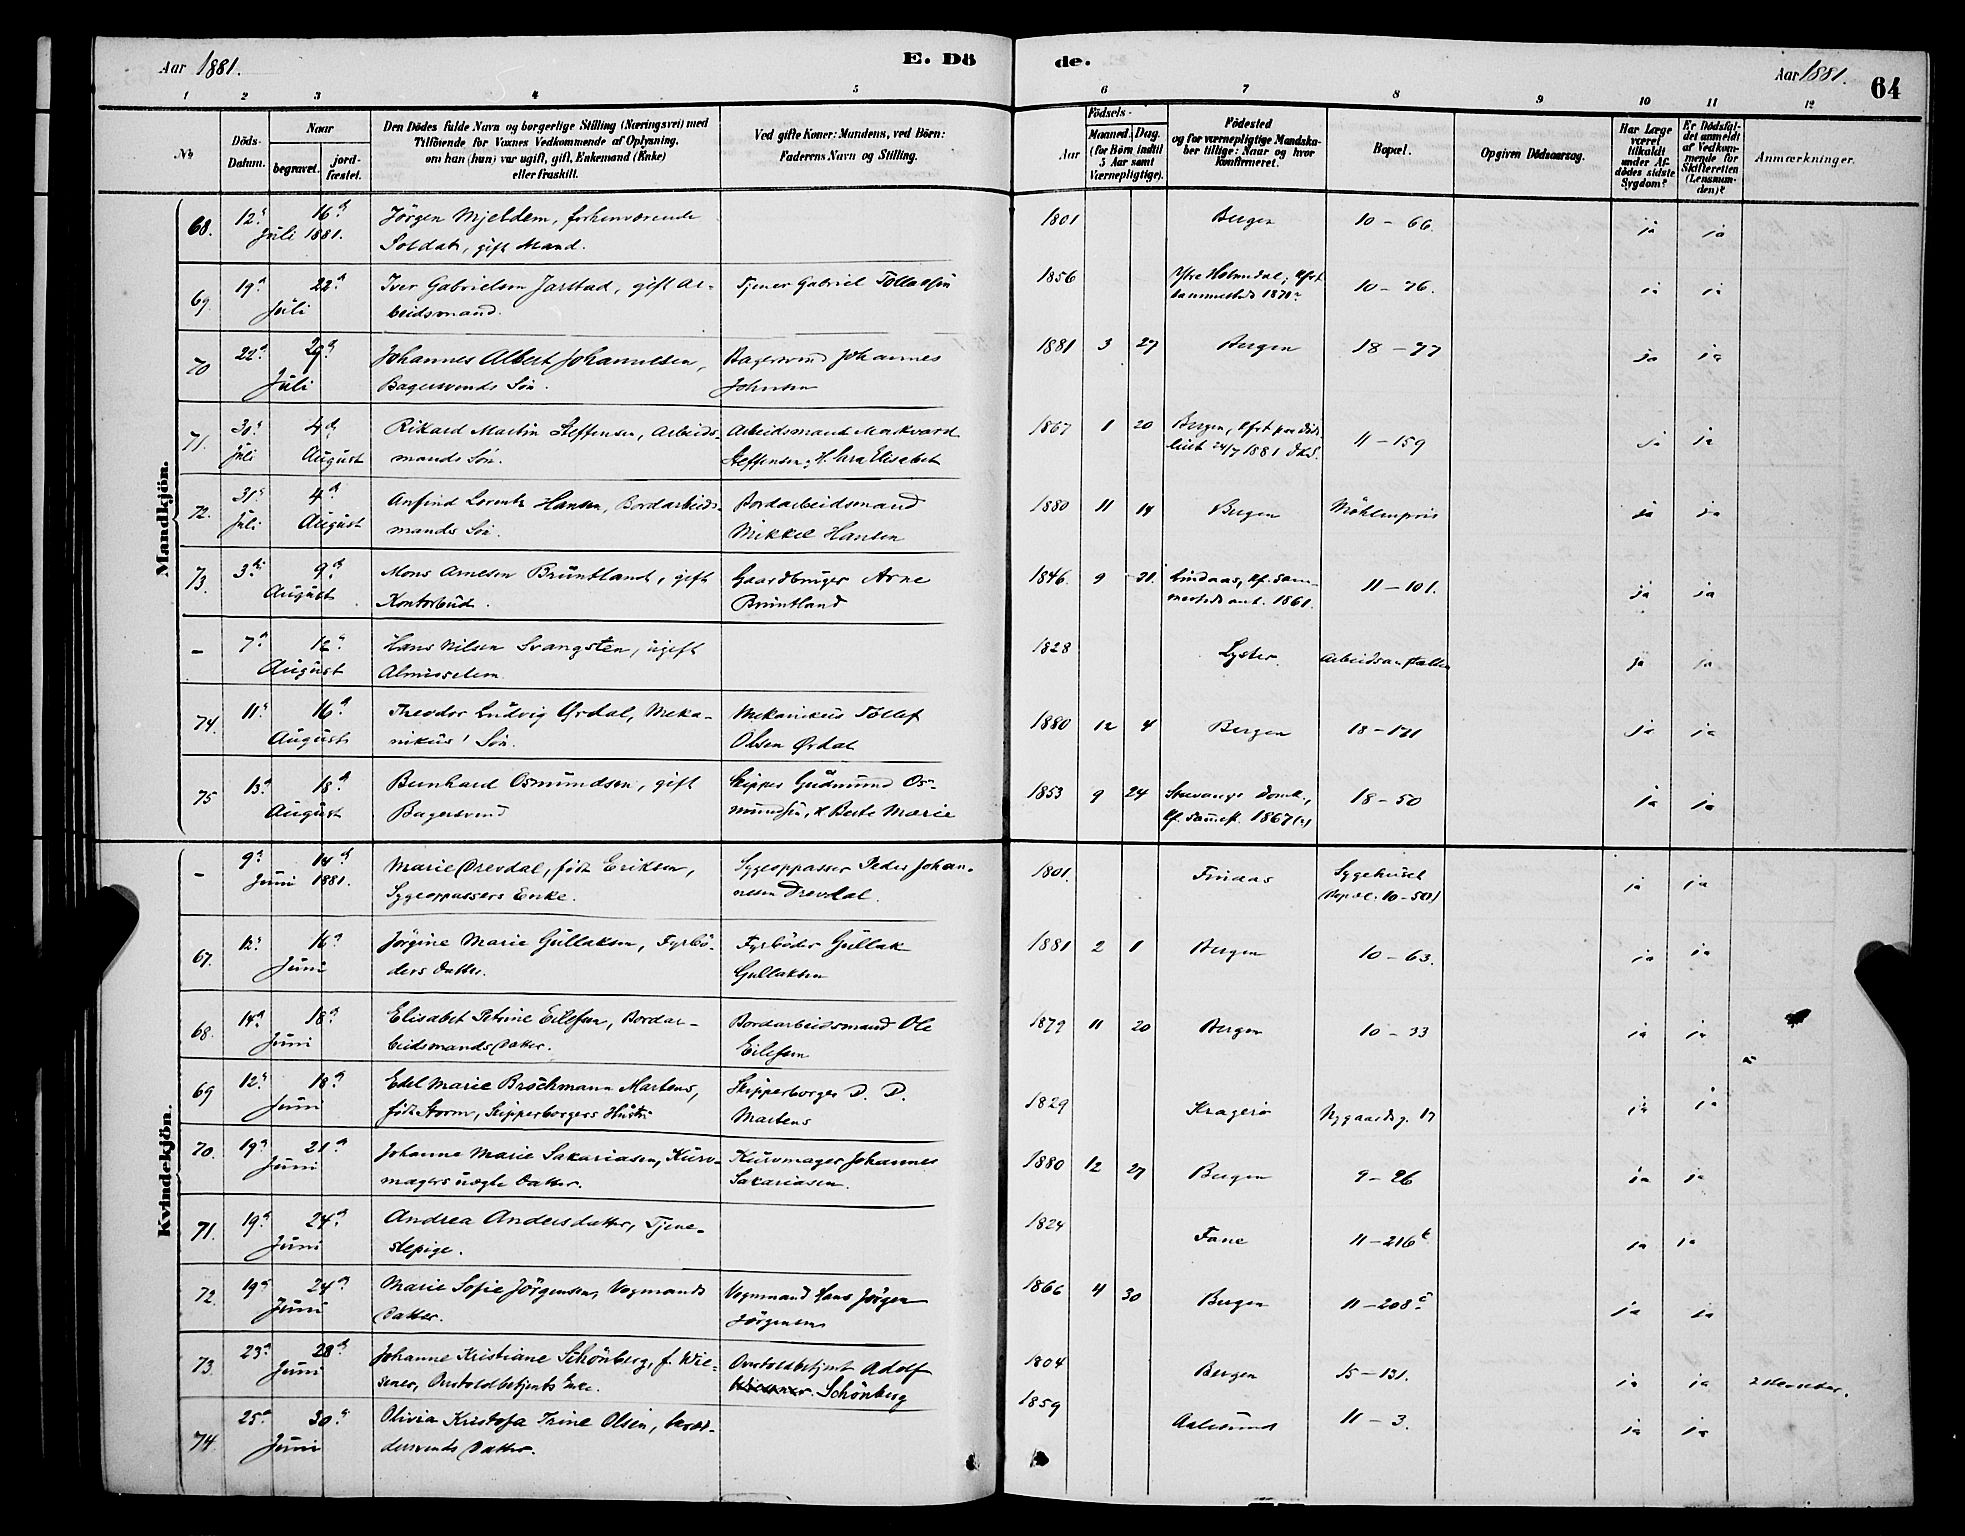 Aar 1881.
E. Dö
de.
Aar 1881.
64
1 2 3 4 5 6 7 8 9 10 11 12
No
Döds-
Datum.
Naar
begravet.
jord-
fæstet.
Den Dödes fulde Navn og borgerlige Stilling (Næringsvei) med
Tilföiende for Voxnes Vedkommende af Oplysning,
om han (hun) var ugift, gift, Enkemand (Enke)
eller fraskilt.
Ved gifte Koner: Mandens, ved Börn:
Faderens Navn og Stilling.
Födsels-
Aar
Maaned. Dag.
(for Börn indtil
5 Aar samt
Værnepligtige).
Födested
og for værnepligtige Mandska-
ber tillige: Naar og hvor
Konfirmeret.
Bopæl.
Opgiven Dödsaarsag.
Har Læge
været
tilkaldt
under Af-
dödes sidste
Sygdom?
Er Dödsfal-
det anmeldt
af Vedkom-
mende for
Skifteretten
(Lensman-
den)?
Anmærkninger.
Mandkjön.
68. 12. 16. Jörgen Mjeldem, forhenværende 1801 Bergen 10 - 66. ja ja
Juli 1881. Soldat, gift Mand.
69. 19. 22. Iver Gabrielsen Jarstad, gift Ar- Tjener Gabriel Tollassön 1856 Ytre Holmedal, 10 - 76. ja ja
Juli beidsmand. sammesteds 1871
70 22. 29. Johannes Albert Johannesen, Bagersvend Johannes 1881 3 27 Bergen 18 - 77 ja ja
Juli Bagersvends Sön. Johnsen
71. 30. 4. Rikard Martin Steffensen, Arbeids- Arbeidsmand Markvard 1867 1 20 Bergen, 11 - 159 ja ja
Juli August mands Sön. Steffensen, H. Sara Elisabet 24/7 1881
72. 31. 4. Anfind Lorentz Hansen, Bordarbeids- Bordarbeidsmand 1880 11 14 Bergen Möhlenpris ja ja
Juli August mands Sön. Mikkel Hansen
73. 3. 9. Mons Arnesen Bruntland, gift Gaardbruger Arne 1846 9 21. Lindaas, 11 - 101. ja ja
August Kontorbud. Bruntland 1861.
- 7. 12. Hans Nilsen Svangsten, ugift 1828 Lyster. Arbeidsanstalten ja ja
August Almisselem.
74. 11. 16. Theodor Ludvig Ørdal, Meka- Mekanikus Tollef 1880 12 4 Bergen 18 - 171 ja ja
August nikus' Sön. Olsen Ørdal
75 13. 18. Bernhard Osmundsen, gift Skipper Gudmund Os- 1853 9 24 Stavanger Domk., 18 - 50 ja ja
August Bagersvend mundsen, H. Berte Marie 1867
Kvindekjön.
- 9. 14. Marie Drevdal, född Eriksen, Sygeopasser Peder Johan- 1801. Findaas Sygehuset ja ja
Juni 1881. Sygeopassers Enke. nesen Drevdal.
67. 12. 16. Jörgine Marie Gullaksen, Fyrbö- Fyrböder Gullak 1881 2 1 Bergen 10 - 63. ja ja
Juni ders Datter. Gullaksen
68. 14. 18. Elisabet Petrine Eilefsen, Bordar- Bordarbeidsmand Ole 1879 11 20 Bergen 10 - 33 ja ja
Juni beidsmands Datter. Eilefsen
69 12. 18. Edel Marie Brochmann Martens, Skipperborger D. D. 1829 Kragerö Nygaardsg. 17 ja ja
Juni föd Storm, Skipperborgers Hustru Martens
70. 19. 21. Johanne Marie Sakariasen, Kurv- Kurvmager Johannes 1880 12 27 Bergen 9 - 26 ja ja
Juni magers uægte Datter. Sakariasen.
71. 19. 24. Andrea Andersdatter, Tjene- 1824 Fane 11 - 216 b ja ja
Juni stepige.
72. 19. 24. Marie Sofie Jörgensen, Vognmands Vognmand Hans Jörgen 1866 4 30 Bergen 11 - 208 c ja ja
Juni Datter. Jörgensen
73 23. 28. Johanne Kristiane Schönberg, f. Wie- Overtoldbetjent Adolf 1804 Bergen 15 - 131. ja ja
Juni sener, Overtoldbetjents Enke. Schönberg
74. 25. 30. Olivia Kristofa Trine Olsen, 1859 Aalesund 11 - 3. ja ja
Juni Datter.